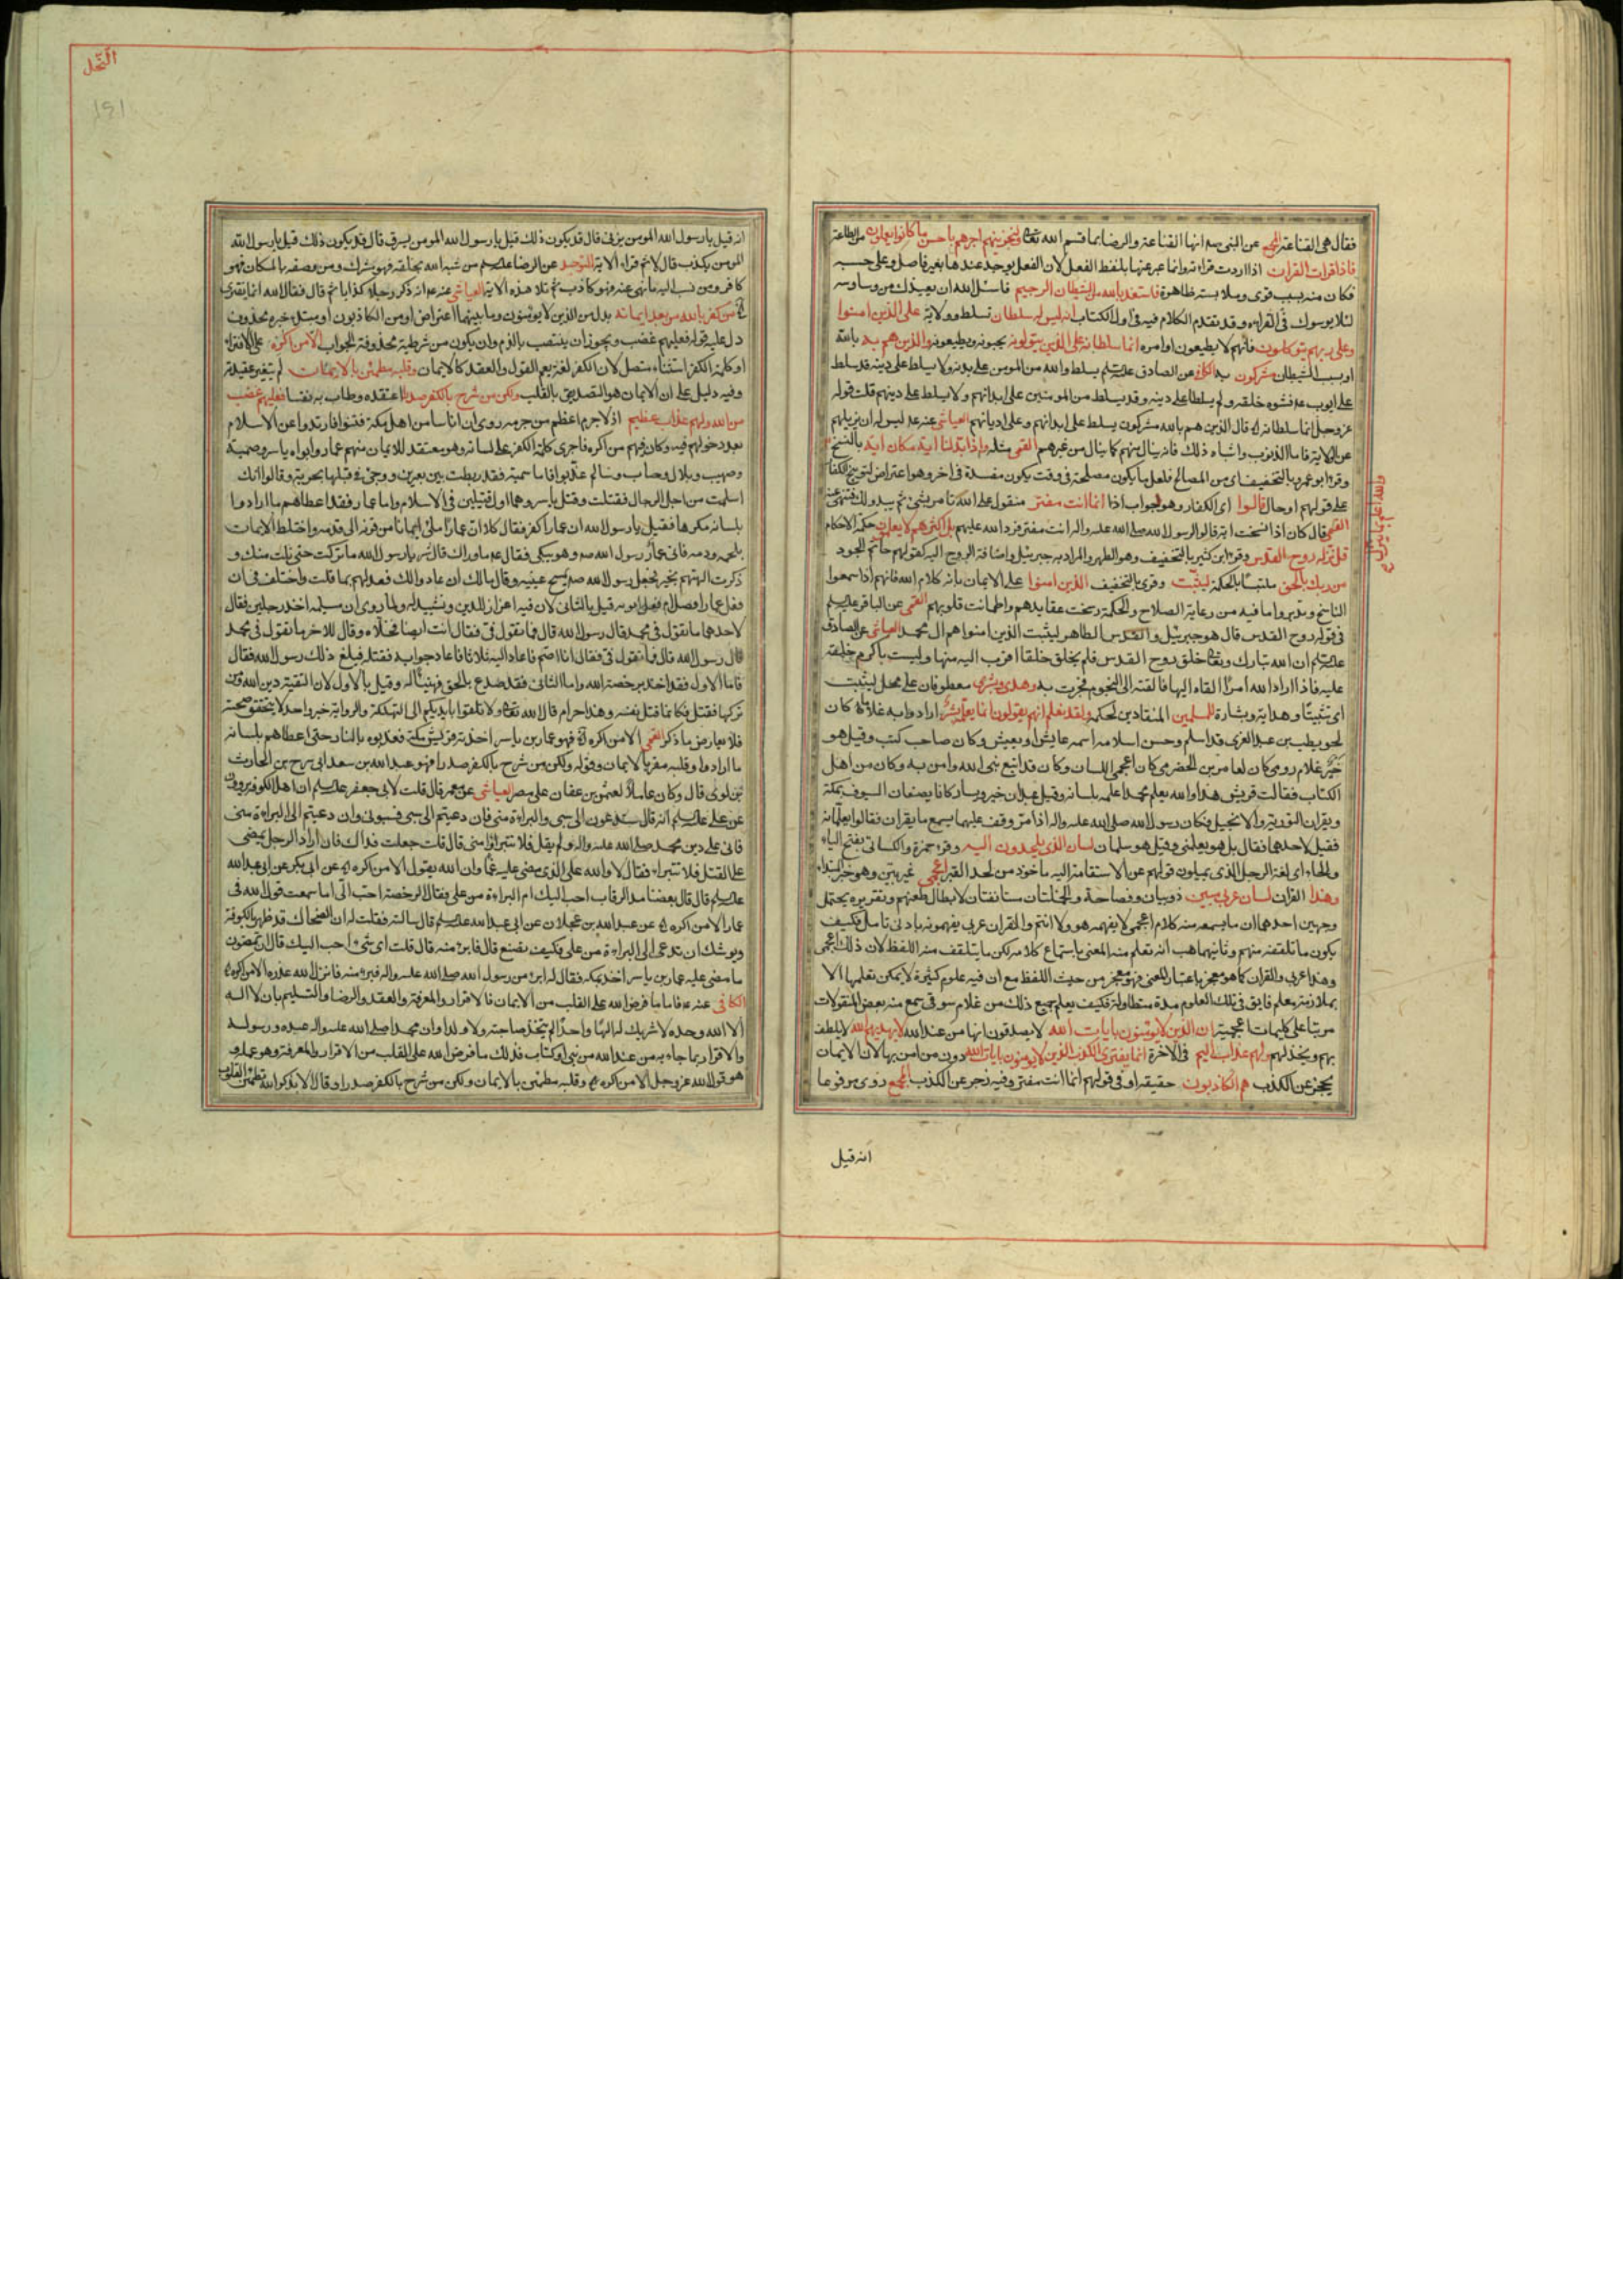 فقال هى القناعة المجمع عن النبى ص انها القناعة والرضا بما قسم الله تعالى ولنجزينهم اجرهم باحسن ما كانوا يعملون من الطاعة
فاذا قرات القران اذا اردت قراءته وانما عبر عنها بلفظ الفعل لان الفعل يوجد عندها بغير فاصل وعلى حسبه
فكان منه بسبب قوى وملابسة ظاهرة فاستعذ بالله من الشيطان الرجيم فاسئل الله ان يعيذك من وساوسه
لئلا يوسوسك فى القراءة وقد تقدم الكلام فيه فى اول الكتاب انه ليس له سلطان تسلط وولاية على الذين امنوا
وعلى ربهم يتوكلون فانهم لا يطيعون اوامره انما سلطانه على الذين يتولونه يحبونه ويطيعونه والذين هم به بالله
او بسبب الشيطان مشركون الكافى عن الصادق عليه السلم يسلط والله من المومن على بدنه ولا يسلط على دينه قد سلط
على ايوب ع فشوه خلقه ولم يسلط على دينه وقد يسلط من المومنين على ابدانهم ولا يسلط على دينهم قلت قوله
عز وجل انما سلطانه قال الذين هم بالله مشركون يسلط على ابدانهم وعلى اديانهم العياشى عنه ع ليس له ان يزيلهم
عن الولاية فاما الذنوب واشباه ذلك فانه ينال منهم كما ينال من غيرهم القمى مثله واذا بدلنا اية مكان اية بالنسخ
وقرء ابو عمرو بالتخفيف من المصالح فلعل ما يكون مصلحة فى وقت يكون مفسدة فى اخر وهو اعتراض لتوبيخ الكفا
على قولهم او حال قالوا اى الكفار وهو جواب اذا انما انت مفتر متقول على الله تامر بشئ ثم يبدو لك فتنهى عنه
القمى قال كان اذا نسخت اية قالوا لرسول الله صلى الله عليه واله انت مفتر فرد الله عليهم بل اكثرهم لا يعلمون حكمة الاحكام
قل نزله روح القدس وقرء ابن كثير بالتخفيف وهو الطهر والمراد به جبرئيل واضافة الروح اليه كقولهم حاتم الجود
من ربك بالحق ملتبسا بالحكمة ليثبت وقرى بالتخفيف الذين امنوا على الايمان بانه كلام الله فانهم اذا سمعوا
الناسخ وتدبروا ما فيه من رعاية الصلاح والحكمة رسخت عقايدهم واطمانت قلوبهم القمى عن الباقر عليه السلم
فى قوله روح القدس قال هو جبرئيل والقدس الطاهر ليثبت الذين امنوا هم ال محمد العياشى عن الصادق
عليه السلم ان الله تبارك وتعالى خلق روح القدس فلم يخلق خلقا اقرب اليه منها وليست باكرم خلقه
عليه فاذا اراد الله امرا القاه اليها فالقته الى النجوم فجرت به وهدى وبشرى معطوفان على محل ليثبت
اى تثبيتا وهداية وبشارة للمسلمين المنقادين لحكمه ولقد نعلم انهم يقولون انما يعلمه بشر ارادوا به غلاما كان
لحويطب بن عبد العزى قد اسلم وحسن اسلامه اسمه عايش او يعيش وكان صاحب كتب وقيل هو
غلام رومى كان لعامر بن الحضرمى كان اعجمى اللسان وكان قد اتبع نبى الله وامن به وكان من اهل
الكتاب فقالت قريش هذا والله يعلم محمدا علمه بلسانه وقيل عبدان خير ويسار كانا يصنعان السيوف بمكة
ويقران التورية والانجيل فكان رسول الله صلى الله عليه واله اذا مر وقف عليهما يسمع ما يقران فقالوا يعلمانه
فقيل لاحدهما فقال بل هو يعلمنى وقيل هو سلمان لسان الذى يلحدون اليه وقرء حمزة والكسائى بفتح الياء
والحاء اى لغة الرجل الذى يميلون قولهم عن الاستقامة اليه ماخوذ من لحد القبر اعجمى غير بين وهو خبر المبتداء
وهذا القران لسان عربى مبين ذو بيان وفصاحة والجملتان مستانفتان لابطال طعنهم وتقريره يحتمل
وجهين احدهما ان ما يسمعه منه كلام اعجمى لا يفهمه هو ولا انتم والقران عربى يفهمونه بادنى تامل فكيف
يكون ما تلقفه منهم وثانيهما هب انه تعلم منه المعنى باستماع كلامه لكن ما يتلقف منه اللفظ لان ذلك اعجمى
وهذا عربى والقران كما هو معجز باعتبار المعنى فهو معجز من حيث اللفظ مع ان فيه علوم كثيرة لا يمكن تعلمها الا
بملازمة معلم فايق فى تلك العلوم مدة متطاولة فكيف يعلم جميع ذلك من غلام سوقى سمع منه بعض المنقولات
مر بتا على كليمات اعجمية ان الذين لا يومنون بايات الله لا يصدقون انها من عند الله لا يهديهم الله لا يلطف
بهم ويخذلهم ولهم عذاب اليم فى الاخرة انما يفترى الكذب الذين لا يومنون بايات الله دون من امن بها لان الايمان
يحجز عن الكذب هم الكاذبون حقيقة او فى قولهم انما انت مفتر وفيه زجر عن الكذب المجمع روى مرفوعا
انه قيل
النحل
151
انه قيل يا رسول الله المومن يزنى قال قد يكون ذلك قيل يا رسول الله المومن يسرق قال قد يكون ذلك قيل يا رسول الله
المومن يكذب قال لا ثم قراء الاية التوحيد عن الرضا عليه السلم من شبه الله بخلقه فهو مشرك ومن وصفه بالمكان فهو
كافر ومن نسب اليه ما نهى عنه فهو كاذب ثم تلا هذه الاية العياشى عنه ع انه ذكر رجلا كذابا ثم قال فقال الله انما يفترى
من كفر بالله من بعد ايمانه بدل من الذين لا يومنون وما بينهما اعتراض او من الكاذبون او مبتداء خبره محذوف
دل عليه قوله فعليهم غضب ويجوز ان ينتصب بالذم وان يكون من شرطية محذوفة الجواب الا من اكره على الافتراء
او كلمة الكفر استثناء متصل لان الكفر لغة يعم القول والعقد كالايمان وقلبه مطمئن بالايمان لم يتغير عقيدته
وفيه دليل على ان الايمان هو التصديق بالقلب ولكن من شرح بالكفر صدرا اعتقده وطاب به نفسا فعليهم غضب
من الله ولهم عذاب عظيم اذ لا جرم اعظم من جرمه روى ان اناسا من اهل مكة فتنوا فارتدوا عن الاسلام
بعد دخولهم فيه وكان فيهم من اكره فاجرى كلمة الكفر على لسانه وهو معتقد للايمان منهم عمار وابواه ياسر وسمية
وصهيب وبلال وخباب وسالم عذبوا فاما سمية فقد ربطت بين بعيرين ووجئ فى قبلها بحربة وقالوا انك
اسلمت من اجل الرجال فقتلت وقتل ياسر وهما اول قتيلين فى الاسلام واما عمار فقد اعطاهم ما ارادوا
بلسانه مكرها فقيل يا رسول الله ان عمارا كفر فقال كلا ان عمارا ملئ ايمانا من قرنه الى قدمه واختلط الايمان
بلحمه ودمه فاتى عمار رسول الله ص وهو يبكى فقال ع ما وراك قال شر يا رسول الله ما تركت حتى نلت منك و
ذكرت الهتهم بخير فجعل رسول الله ص يمسح عينيه وقال مالك ان عادوا لك فعد لهم بما قلت واختلف فى ان
فعل عمار افضل ام فعل ابويه قيل بالثانى لان فيه اعزاز للدين وتشييد له ولما روى ان مسيلمه اخذ رجلين فقال
لاحدهما ما تقول فى محمد قال رسول الله قال فما تقول فى فقال انت ايضا فخلاه وقال للاخر ما تقول فى محمد
قال رسول الله قال فما تقول فى فقال انا اصم فاعاد اليه ثلاثا فاعاد جوابه فقتله فبلغ ذلك رسول الله فقال
فاما الاول فقد اخذ برخصة الله واما الثانى فقد صدع بالحق فهنيئا له وقيل بالاول لان التقية دين الله فمن
تركها فقتل فكانما قتل نفسه وهذا حرام قال الله تعالى ولا تلقوا بايديكم الى التهلكة والرواية خبر واحد لا يتحقق صحته
فلا يعارض ما ذكر القمى الا من اكره فهو عمار بن ياسر اخذته قريش بمكة فعذبوه بالنار حتى اعطاهم بلسانه
ما ارادوا وقلبه مقر بالايمان وقوله ولكن من شرح بالكفر صدرا فهو عبد الله بن سعد ابى سرح بن الحارث
بن لوى قال وكان عاملا لعثمن بن عفان على مصر العياشى عن معمر قال قلت لابى جعفر عليه السلم ان اهل الكوفة يروون
عن على عليه السلم انه قال ستدعون الى سبى والبراءة منى فان دعيتم الى سبى فسبونى وان دعيتم الى البراءة منى
فانى على دين محمد صلى الله عليه واله ولم يقل فلا تتبراوا منى قال قلت جعلت فداك فان اراد الرجل يمضى
على القتل فلا تتبراء فقال لا والله على الذى مضى عليه عمار ان الله يقول الا من اكره عن ابى بكر عن ابى عبد الله
عليه السلم قال قال بعضنا مد الرقاب احب اليك ام البراءة من على فقال الرخصة احب الى اما سمعت قول الله فى
عمار الا من اكره عن عبد الله بن عجلان عن ابى عبد الله عليه السلم قال سالته فقلت له ان الضحاك قد ظهر بالكوفة
ويوشك ان تدعى الى البراءة من على فكيف نصنع قال فابرء منه قال قلت اى شئ احب اليك قال ان يمضون
ما مضى عليه عمار بن ياسر اخذ بمكة فقال له ابرء من رسول الله صلى الله عليه واله فبرء منه فانزل الله عذره الا من اكره
الكافى عنه ع فاما ما فرض الله على القلب من الايمان فالاقرار والمعرفة والعقد والرضا والتسليم بان لا اله
الا الله وحده لا شريك له الها واحدا لم يتخذ صاحبة ولا ولدا وان محمدا صلى الله عليه واله عبده ورسوله
والاقرار بما جاء به من عند الله من نبى او كتاب فذلك ما فرض الله على القلب من الاقرار والمعرفة وهو عمله و
هو قول الله عز وجل الا من اكره وقلبه مطمئن بالايمان ولكن من شرح بالكفر صدرا وقال الا بذكر الله تطمئن القلوب